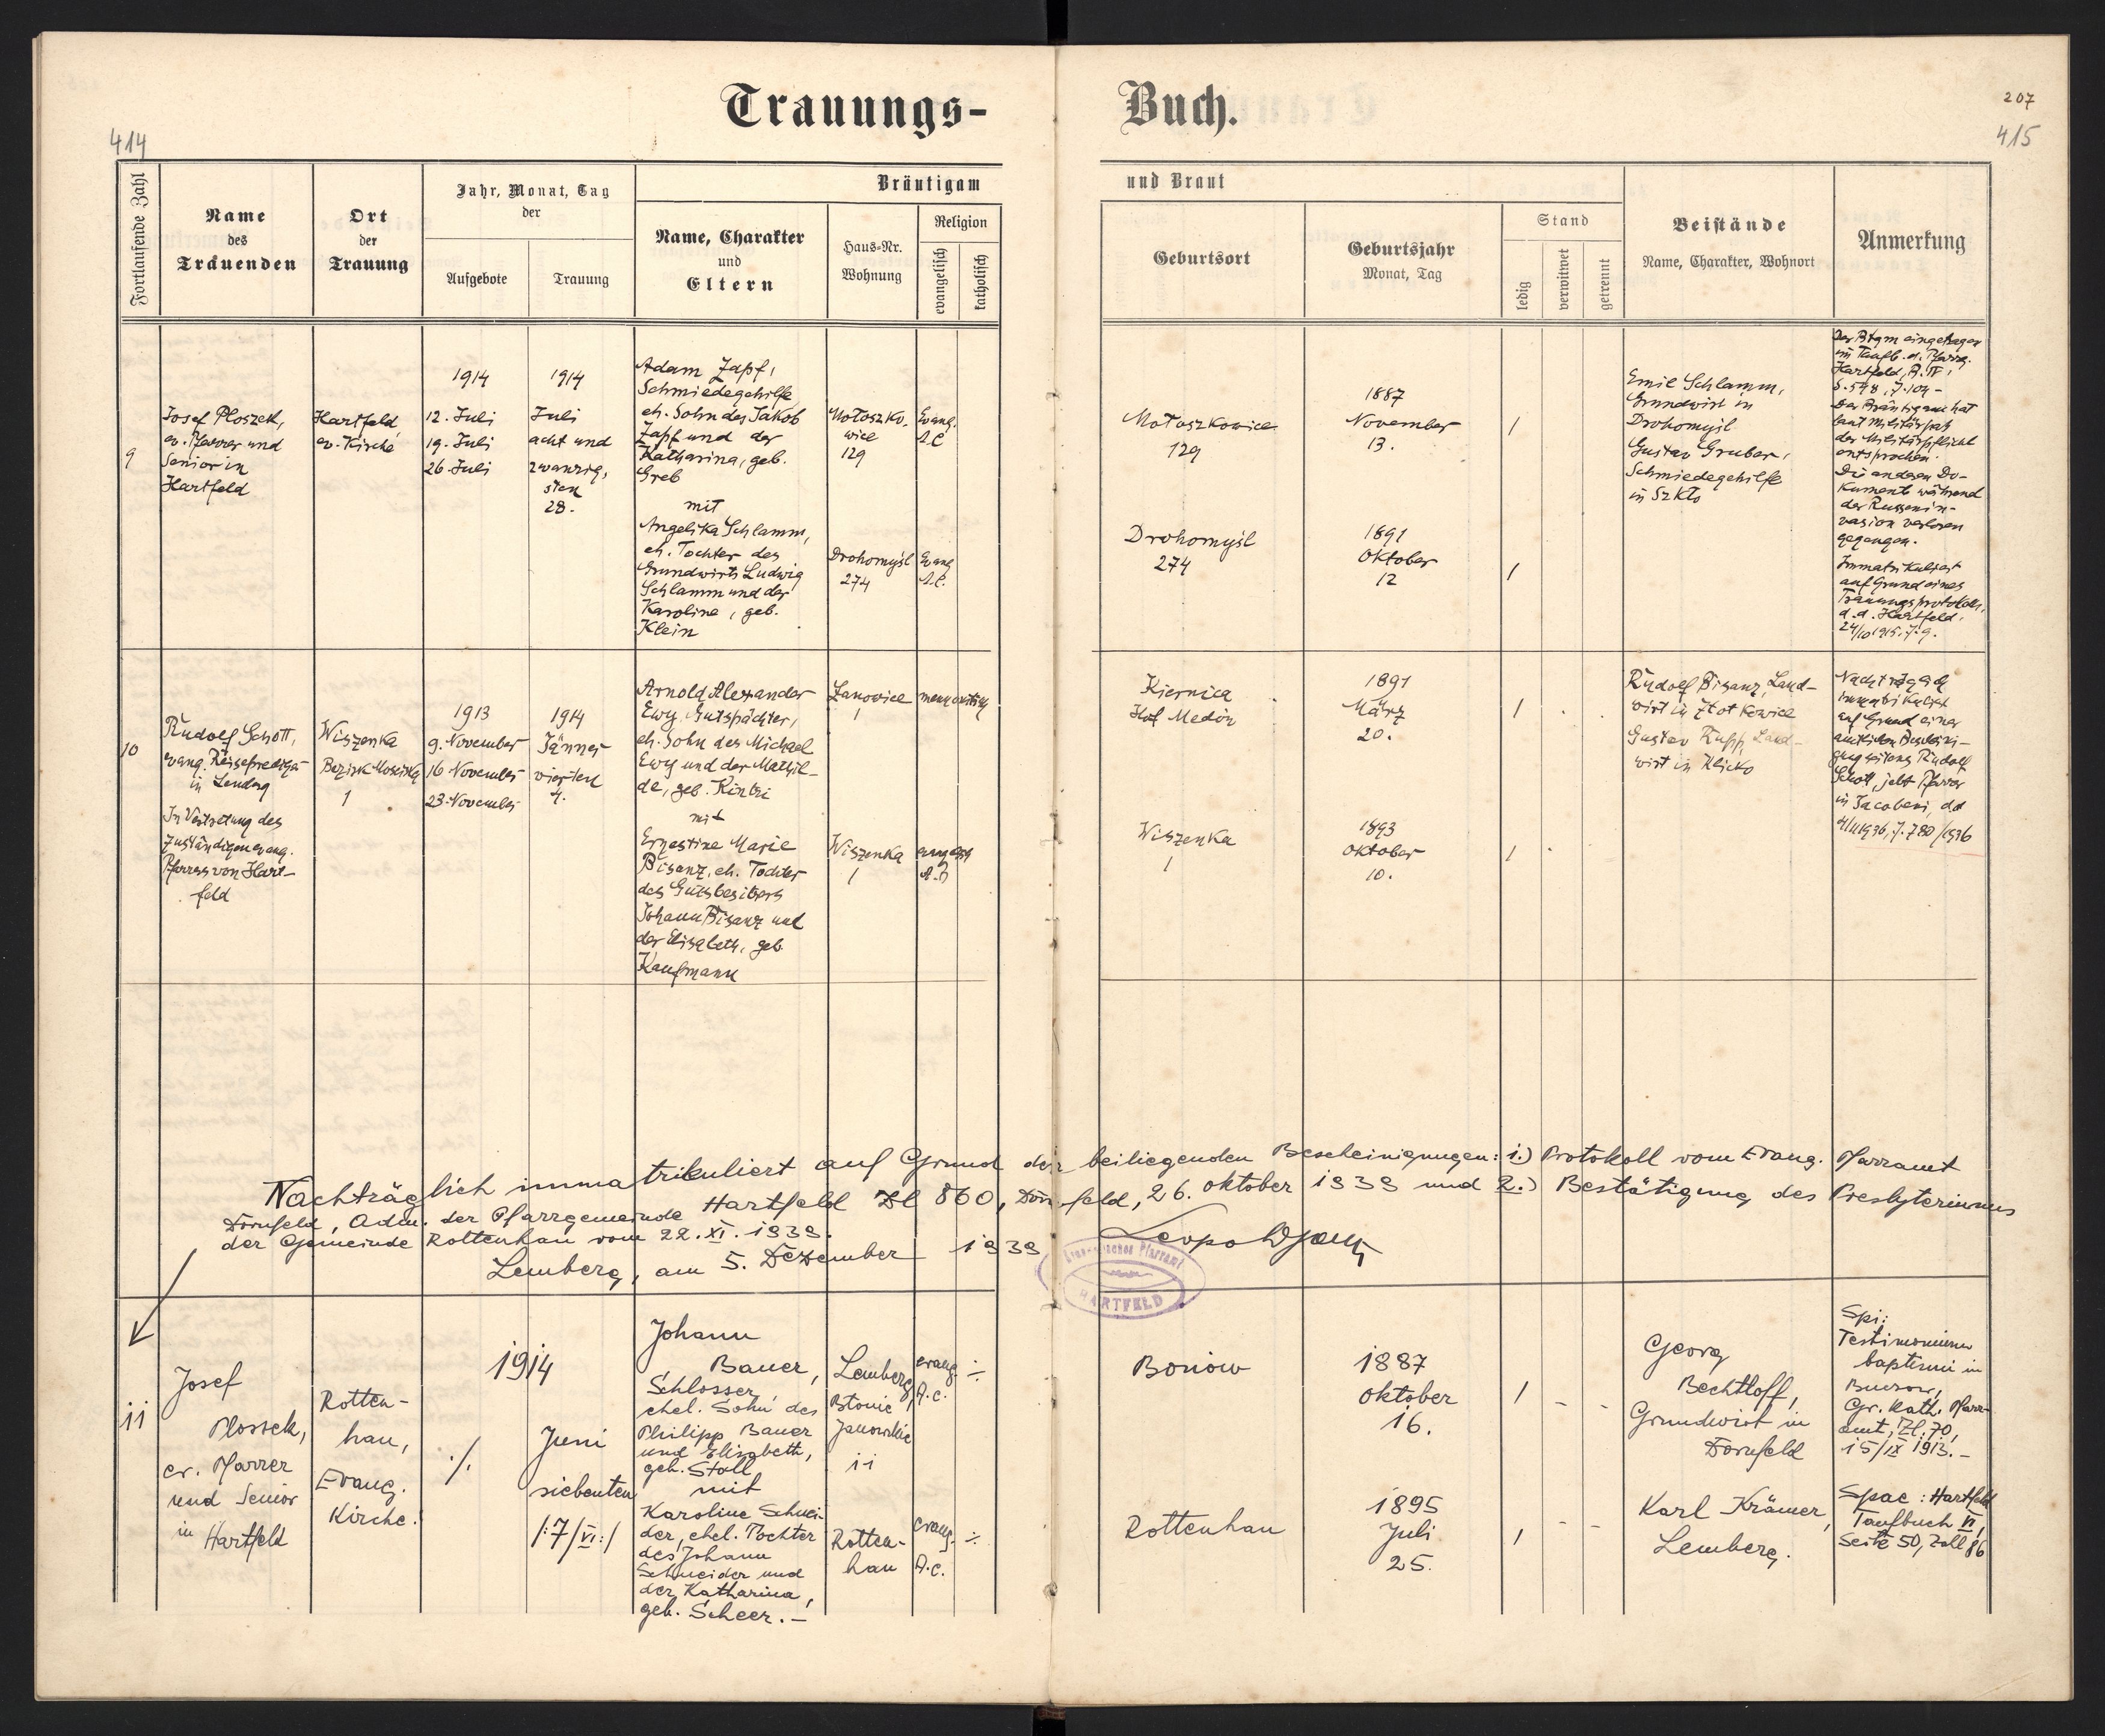 Trauungs-
Buch.
414
207
415
Fortlaufende Zahl
Name
des
Trauenden
Ort
der
Trauung
Jahr, Monat, Tag
der
Aufgebote
Trauung
Bräutigam
Name, Charakter
und
Eltern
Haus-Nr.
Wohnung
Religion
evangelisch
katholisch
und Braut
Geburtsort
Geburtsjahr
Monat, Tag
Stand
ledig
verwitwet
getrennt
Beistände
Name, Charakter, Wohnort
Anmerkung
9
Josef Ploszek,
ev. Pfarrer und
Senior in
Hartfeld
Hartfeld
ev. Kirche
1914
12. Juli
19. Juli
26. Juli
1914
Juli
acht und
zwanzig,
sten
28.
Adam Zapf,
Schmiedegehilfe
eh. Sohn des Jakob
Zapf und der
Katharina, geb.
Greb
mit
Angelika Schlamm,
eh. Tochter des
Grundwirts Ludwig
Schlamm und der
Karoline, geb.
Klein
Mołoszko-
wice
129
Evang.
A.C.
Drohomyśl
274
Evang
A.C.
Mołoszkowice
129
1887
November
13.
/
Drohomyśl
274
1891
Oktober
12
/
Emil Schlamm,
Grundwirt in
Drohomyśl
Gustav Gruber,
Schmiedegehilfe
in Szkło
Der Btgm eingetragen
im Taufb. d. Pfarrg.
Hartfeld, B. IV,
S. 548, J. 104 -
Der Bräutigam hat
laut Militärpaß
der Militärpflicht
entsprochen.
Die anderen Do-
kumente während
der Russenin-
vasion verloren
gegangen.
Immatrikuliert
auf Grund eines
Trauungsprotokolls,
d.d. Hartfeld,
24/10 1915. J. 9.
10
Rudolf Schott,
evang. Reiseprediger
in Lemberg
In Vertretung des
zuständigen evang.
Pfarrers von Hart-
feld
Wiszenka
Bezirk Mosciska
1
1913
9. November
16 November
23. November
1914
Jänner
vierten
4.
Arnold Alexander
Ewy, Gutspächter,
eh. Sohn des Michael
Ewy und der Mathil-
de, geb. Kintzi
mit
Ernestine Marie
Bisanz, eh. Tochter
des Gutsbesitzers
Johann Bisanz und
der Elisabeth, geb.
Kaufmann
Łanowice
1
mennonitisch
Wiszenka
1
evangelisch
A.B
Kiernica
Hof Medon
1891
März
20.
/
Wiszenka
1
1893
Oktober
10.
/
Rudolf Bisanz, Land-
wirt in
Gustav Rupp, Land-
wirt in Klicko
Nachträglich
immatrikuliert
auf Grund einer
amtlichen Bescheini-
gung seitens Rudolf
Schott, jetzt Pfarrer
in Jacobeni, dd
4/II 1936, J. 780/1936
Nachträglich immatrikuliert auf Grund der beiliegenden Bescheinigungen: 1.) Protokoll vom Evang. Pfarramt
Dornfeld, Adm. der Pfarrgemeinde Hartfeld Zl 860, Dornfeld, 26. Oktober 1939 und 2.) Bestätigung des Presbyteriums
der Gemeinde Rottenhan vom 22. XI. 1939.
Lemberg, am 5. Dezember 1939
Evangelisches Pfarramt
HARTFELD
11
Josef
Plossek,
ev. Pfarrer
und Senior
in Hartfeld
Rotten-
han,
Evang.
Kirche.
1914
./.
Juni
siebenten
/:7/VI:/
Johann
Bauer,
Schlosser,
ehel. Sohn des
Philipp Bauer
und Elisabeth,
geb. Stoll
mit
Karoline Schnei-
der, ehel. Tochter
des Johann
Schneider und
der Katharina,
geb. Scheer. -
Lemberg,
Błonie
Janowskie
11
evang.
A.C.
÷
Rotten-
han
evang.
A.C.
÷
Boniow
1887
Oktober
16.
/ - -
Rottenhan
1895
Juli
25.
/ - -
Georg
Bechtloff,
Grundwirt in
Dornfeld
Karl Krämer,
Lemberg.
Spi:
Testimonium
baptismi in
Gr. Kath. Pfarr-
amt, Zl. 70,
15/IX 1913. -
Spae: Hartfeld
Taufbuch VI,
Seite 50, Zall 86